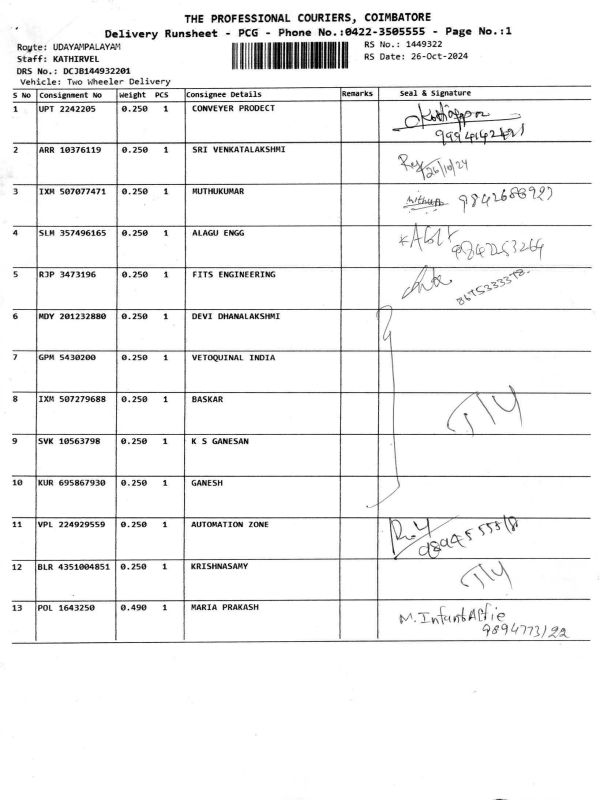 THE PROFESSIONAL COURIERS, COIMBATORE
Delivery Runsheet - PCG - Phone No.:0422-3505555 - Page No.:1
Route: UDAYAMPALAYAM RS No.: 1449322
Staff: KATHIRVEL RS Date: 26-Oct-2024
DRS No.: DCJB144932201
Vehicle: Two Wheeler Delivery
S No Consignment No Weight PCS Consignee Details Remarks Seal & Signature
1 UPT 2242205 0.250 1 CONVEYER PRODECT
2 ARR 10376119 0.250 1 SRI VENKATALAKSHMI
26/10/24
3 IXM 507077471 0.250 1 MUTHUKUMAR
4 SLM 357496165 0.250 1 ALAGU ENGG
5 RJP 3473196 0.250 1 FITS ENGINEERING
8675333378
6 MDY 201232880 0.250 1 DEVI DHANALAKSHMI
7 GPM 5430200 0.250 1 VETOQUINAL INDIA
8 IXM 507279688 0.250 1 BASKAR
9 SVK 10563798 0.250 1 K S GANESAN
10 KUR 695867930 0.250 1 GANESH
11 VPL 224929559 0.250 1 AUTOMATION ZONE
12 BLR 4351004851 0.250 1 KRISHNASAMY
13 POL 1643250 0.490 1 MARIA PRAKASH
9894773122